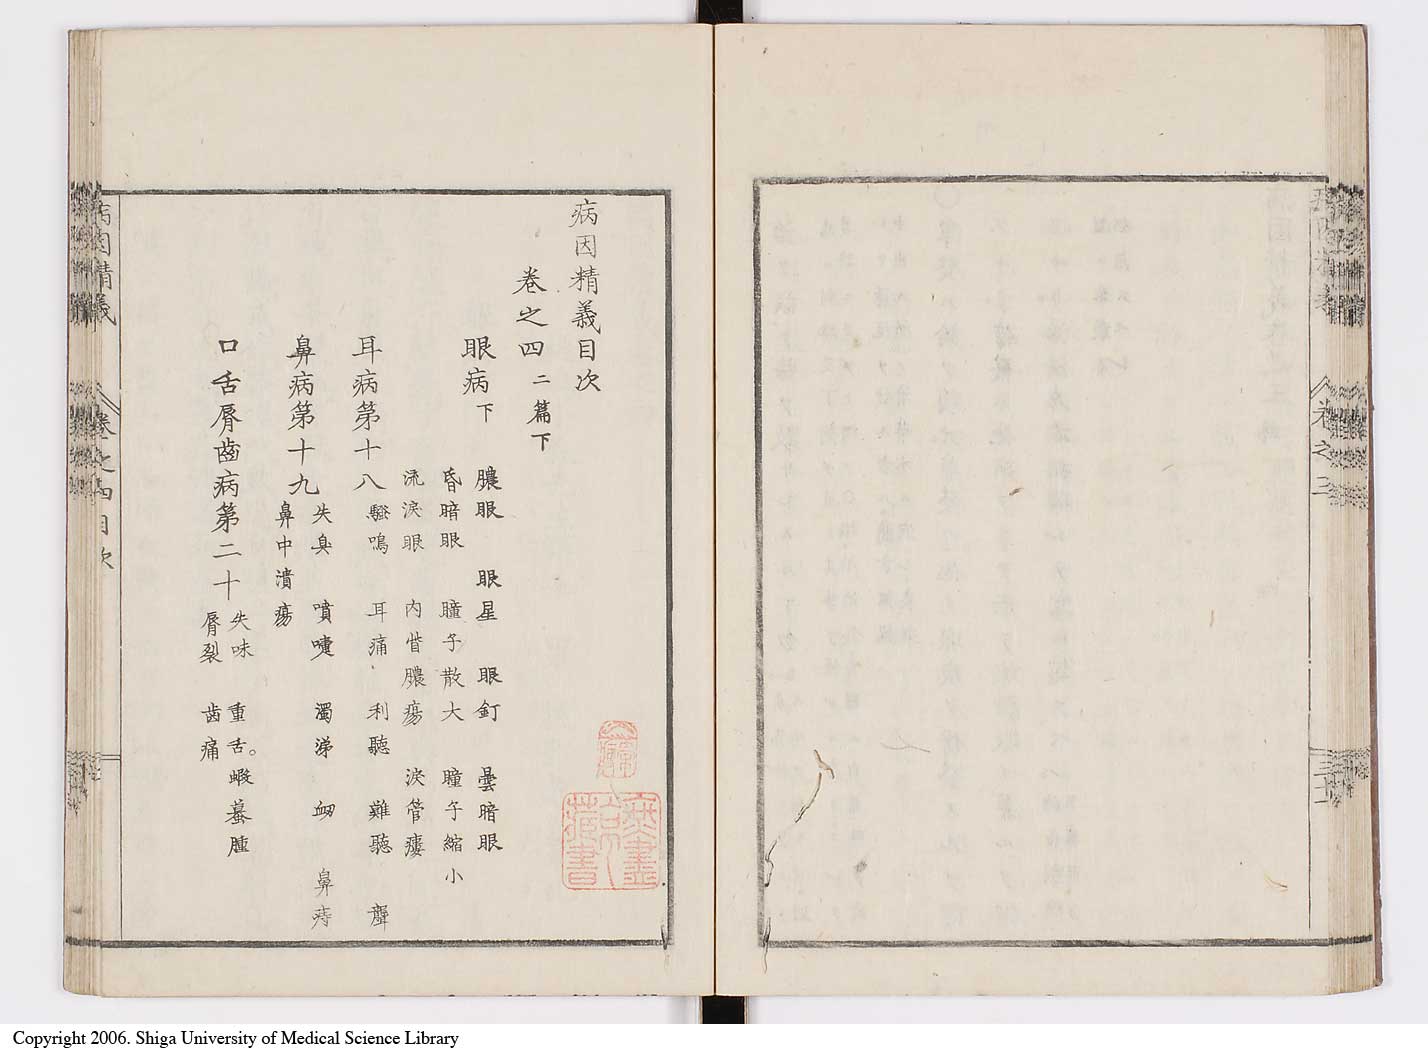 病因精義目次
卷之四 二篇下
眼病下
膿眼 眼星 眼釘 曇暗眼
昏暗眼 瞳子散大 瞳子縮小
流淚眼 內眥膿瘍 淚管瘻
耳病第十八
騷鳴 耳痛 利聽 難聽 聾
鼻病第十九
失臭 噴嚏 濁涕 衂 鼻痔
鼻中潰瘍
口舌脣齒病第二十
失味 重舌。蝦蟇腫
脣裂 齒痛
病因精義 卷之四目次
卷之三
Copyright 2006. Shiga University of Medical Science Library